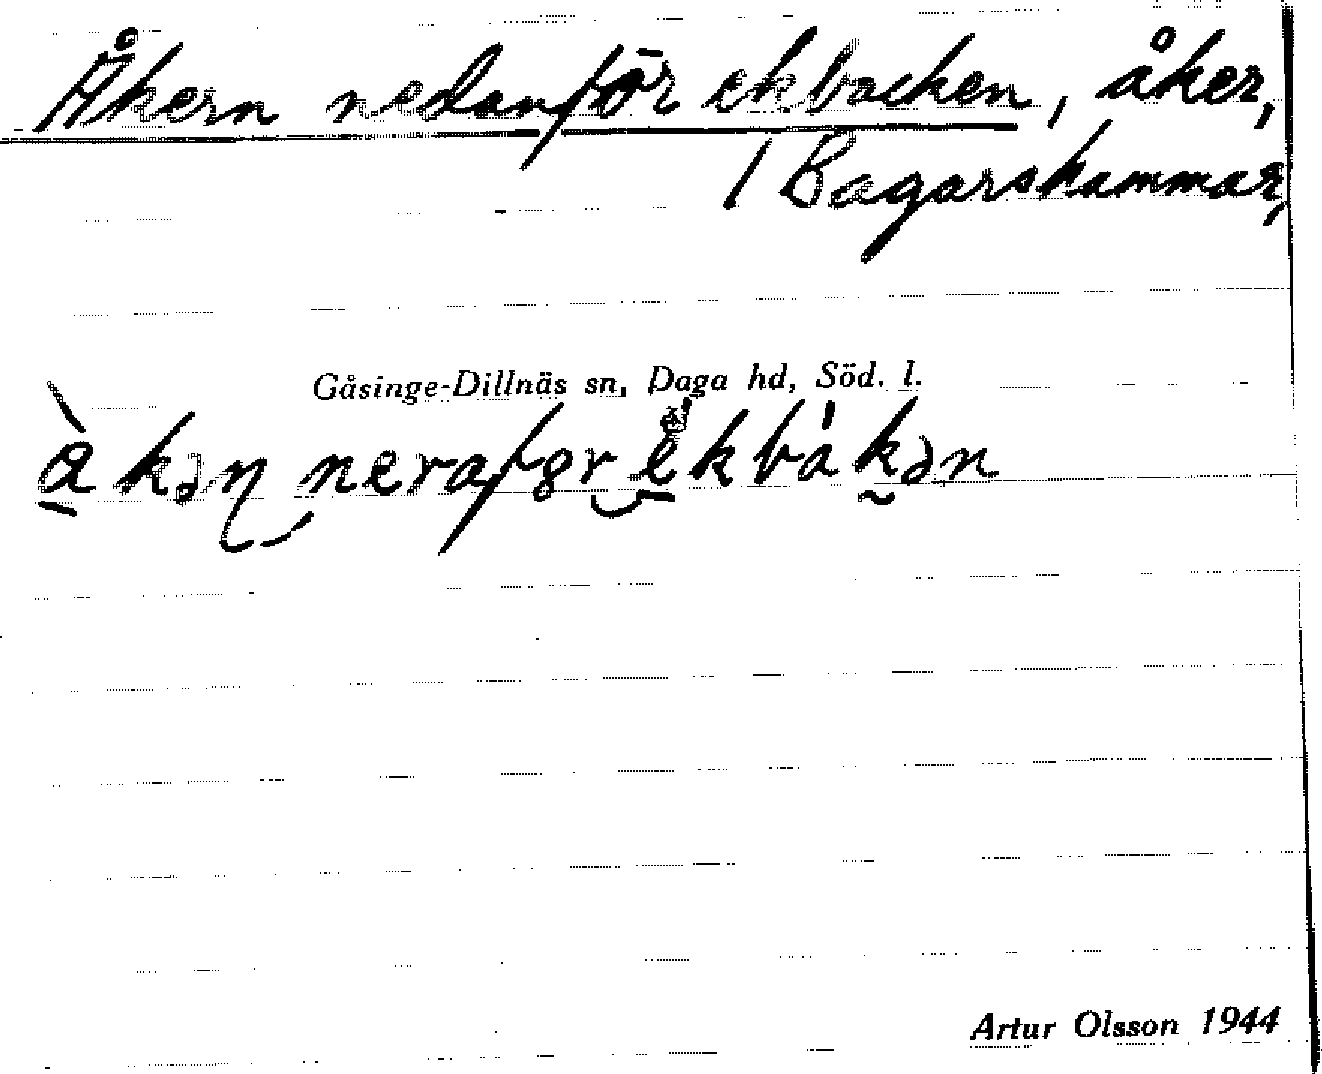 Åkern nedanför ekbacken, åker,
/ Bagarshammar,
Gåsinge-Dillnäs sn, Daga hd, Söd. l.
Artur Olsson 1944